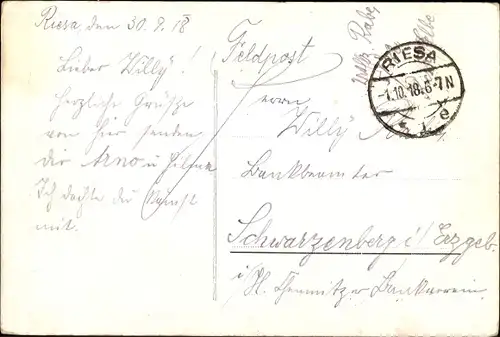 Riesa, den 30. 9. 18
Lieber Willy!
Herzliche Grüße
von hier senden
dir Arno u.
Ich dachte du kämst
mit.
Feldpost
Willy Rabe
RIESA
-1.10.18.6-7N
* 1 e
Herrn
Willy
Bankbeamter
Schwarzenberg i/Erzgeb.
i/H. Chemnitzer Bankverein